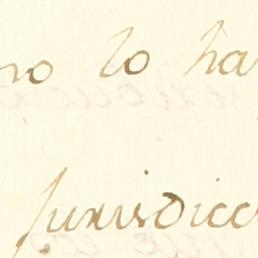 no lo ha
Jurisdicc